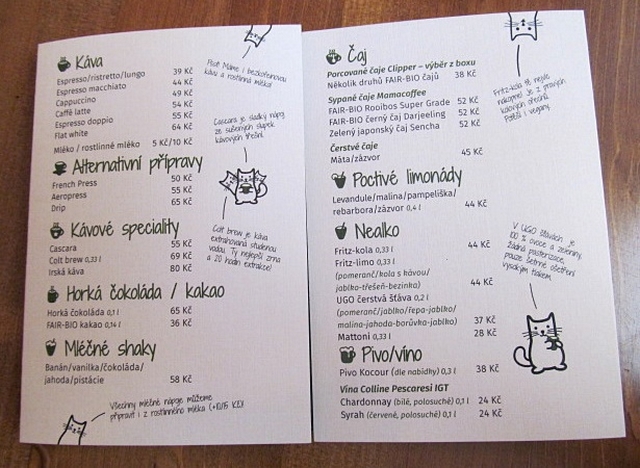 Káva
Espresso/ristretto/lungo 39 Kč
Espresso macchiato 44 Kč
Cappuccino 49 Kč
Caffè latte 54 Kč
Espresso doppio 55 Kč
Flat white 64 Kč
Mléko / rostlinné mléko 5 Kč/10 Kč
Psst! Máme i bezkofeinovou
kávu a rostlinná mléka!
Cascara je sladký nápoj
ze sušených slupek
kávových třešní.
Alternativní přípravy
French Press 50 Kč
Aeropress 55 Kč
Drip 65 Kč
Kávové speciality
Cascara 55 Kč
Colt brew 0,33 l 69 Kč
Irská káva 80 Kč
Colt brew je káva
extrahovaná studenou
vodou. Ty nejlepší zrna
a 20 hodin extrakce!
Horká čokoláda / kakao
Horká čokoláda 0,1 l 65 Kč
FAIR-BIO kakao 0,14 l 36 Kč
Mléčné shaky
Banán/vanilka/čokoláda/
jahoda/pistácie 58 Kč
Všechny mléčné nápoje můžeme
připravit i z rostlinného mléka (+10/15 Kč)!
Čaj
Porcované čaje Clipper – výběr z boxu
Několik druhů FAIR-BIO čajů 38 Kč
Sypané čaje Mamacoffee
FAIR-BIO Rooibos Super Grade 52 Kč
FAIR-BIO černý čaj Darjeeling 52 Kč
Zelený japonský čaj Sencha 52 Kč
Čerstvé čaje
Máta/zázvor 45 Kč
Fritz-kola tě nejde
nakopne! Je z pravých
kolových ořechů.
Potěší i vegany.
Poctivé limonády
Levandule/malina/pampeliška/
rebarbora/zázvor 0,4 l 44 Kč
Nealko
Fritz-kola 0,33 l 44 Kč
Fritz-limo 0,33 l
(pomeranč/kola s kávou/
jablko-třešeň-bezinka) 44 Kč
UGO čerstvá šťáva 0,2 l
(pomeranč/jablko/řepa-jablko/
malina-jahoda-borůvka-jablko) 37 Kč
Mattoni 0,33 l 28 Kč
V UGO šťávách je
100 % ovoce a zeleniny,
žádná pasterizace,
pouze šetrné ošetření
vysokým tlakem.
Pivo/víno
Pivo Kocour (dle nabídky) 0,3 l 38 Kč
Vína Colline Pescaresi IGT
Chardonnay (bílé, polosuché) 0,1 l 24 Kč
Syrah (červené, polosuché) 0,1 l 24 Kč